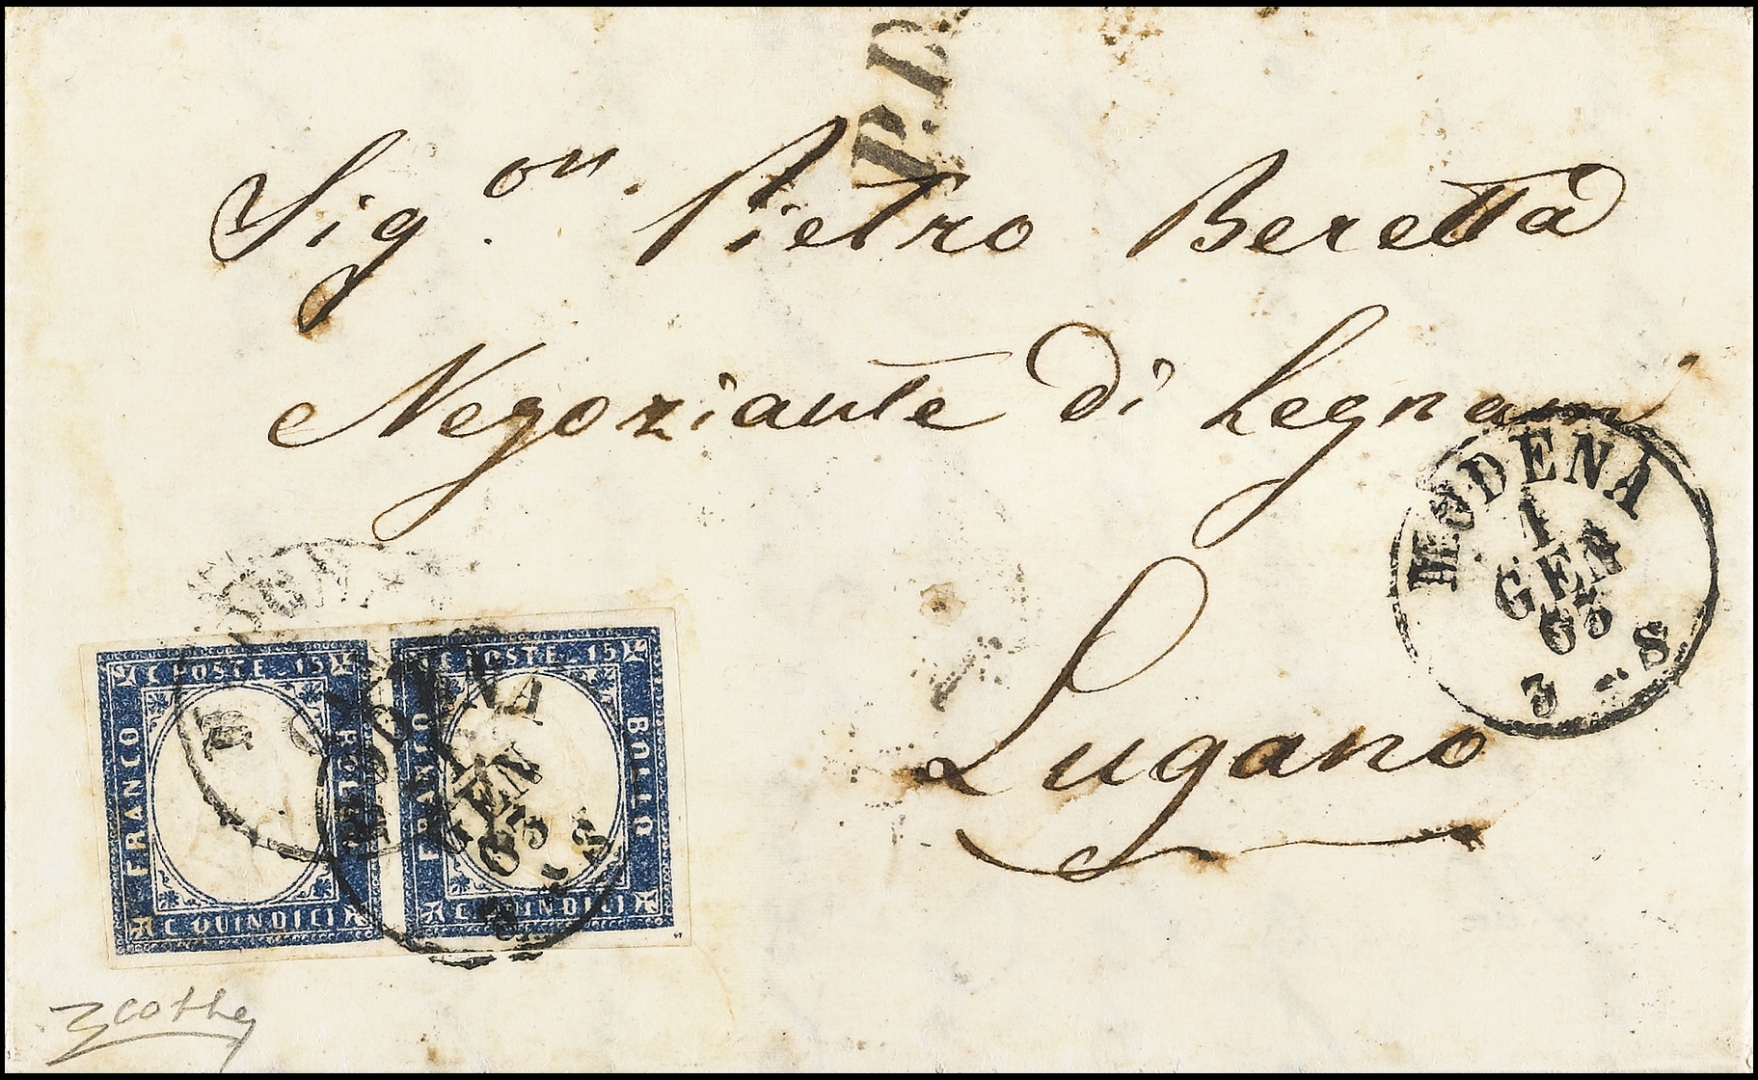 P.D.
Sig.on. Pietro Beretta
Negoziante di Legnami
Lugano
MODENA
1
GEN
63
3 S
C POSTE 15
FRANCO
BOLLO
C QUINDICI
C POSTE 15
FRANCO
BOLLO
C QUINDICI
MODENA
GEN
63
3 S